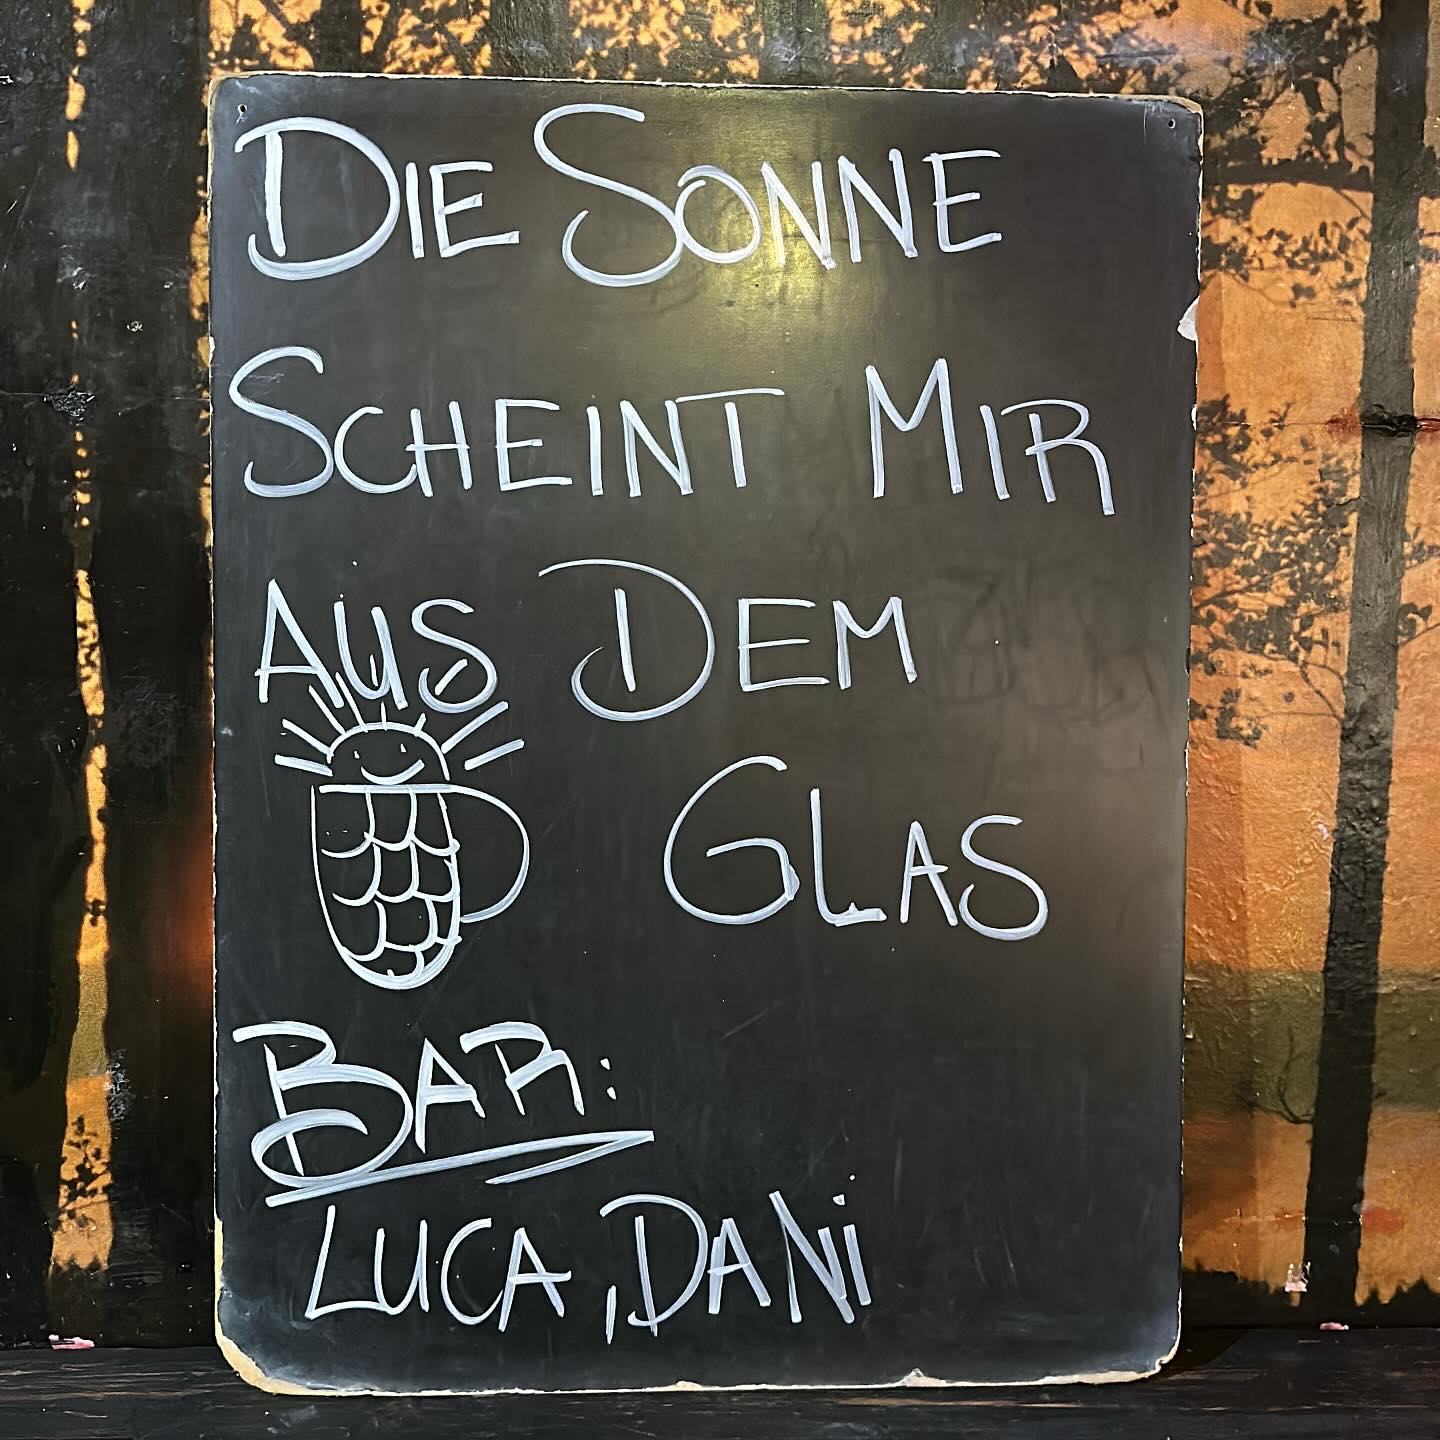 DIE SONNE
SCHEINT MIR
AUS DEM
GLAS
BAR:
LUCA, DANi